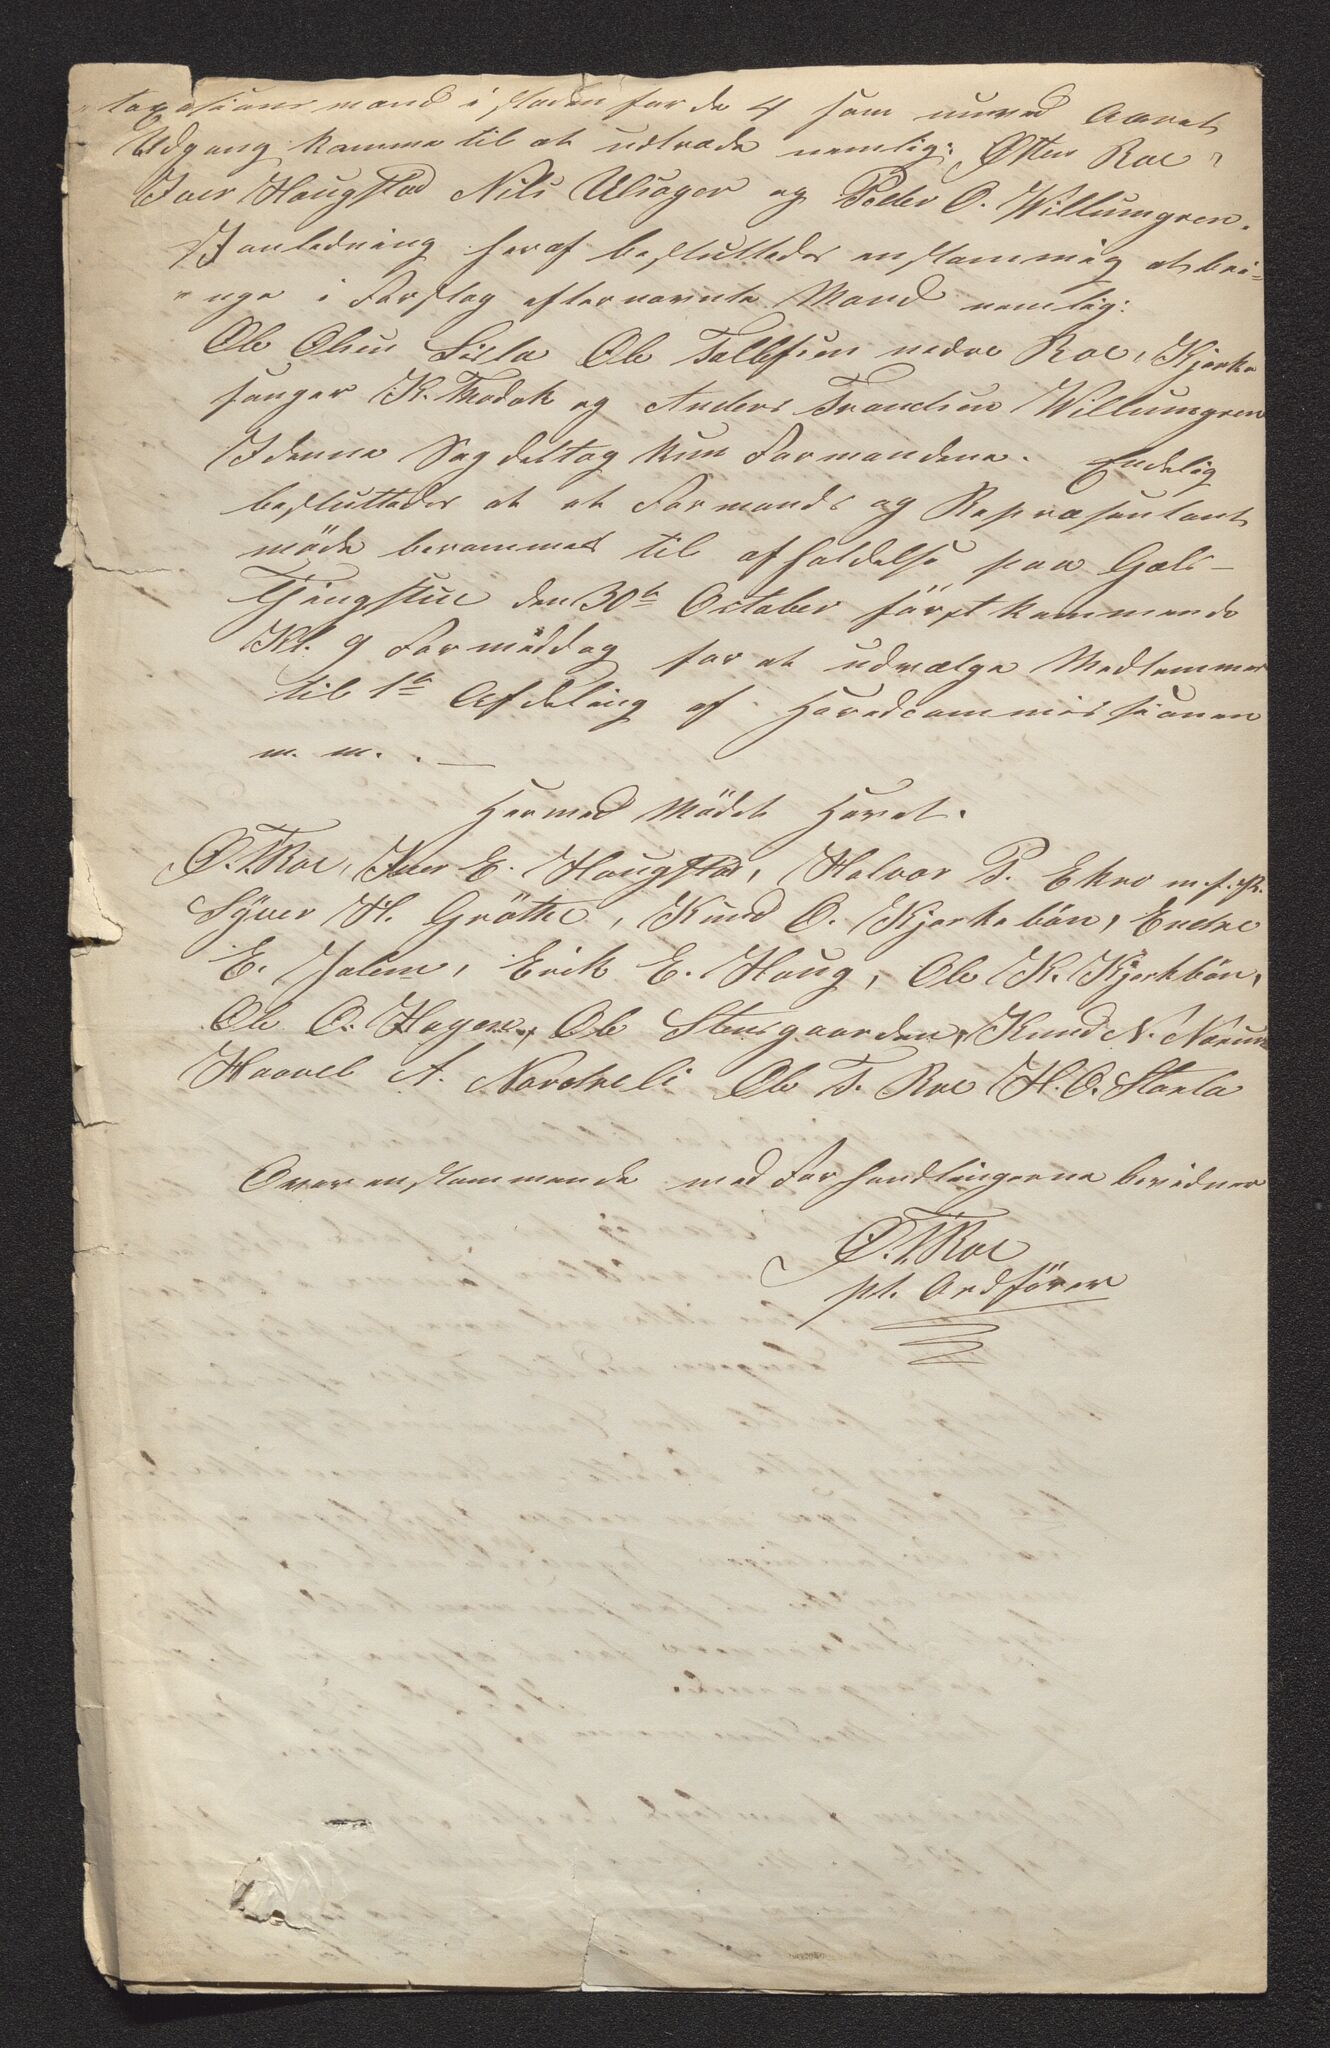 "taxationsmænd i Steden for de 4 som nu ved Aarets
Udgang komme til at udtræde nemlig: Østen Roe,
Iver Haugstad Nils Ulsager og Peder O. Willumgren.
I Anledning heraf besluttedes enstemmig at bri-
"nge i Forslag efternævnte Mænd nemlig:
Ole Olsen Lista Ole Tollefsen nedre Roe, Kjerke
sanger K. Modok og Anders Trandsen Willumgren
I denne Sag deltog kun Formændene. Endelig
besluttedes at et Formands og Repræsentant
møde berammes til afholdelse paa Gols-
Thingstue den 30te October førstkommende
Kl. 9 Formiddag for at udvælge Medlemmer
til 1te Afdeling af Heredcommissionen
m. m. . —
Hermed Mødet Hævet.
Ø. T. Roe, Iver E. Haugstad, Halvor P. Ekro m. f. P.
Syver H. Grøthe, Knud O. Kjerkebøn, Endre
E. Jalem, Erik E. Haug, Ole K. Kjerkbøn,
Ole O. Hagene, Ole Stensgaarden, Knud N. Nærum
Haavel A. Nordveli Ole T. Roe H. O. Storla
Overensstemmende med Forhandlingerne bevidner
Ø. T. Roe
pt. Ordfører